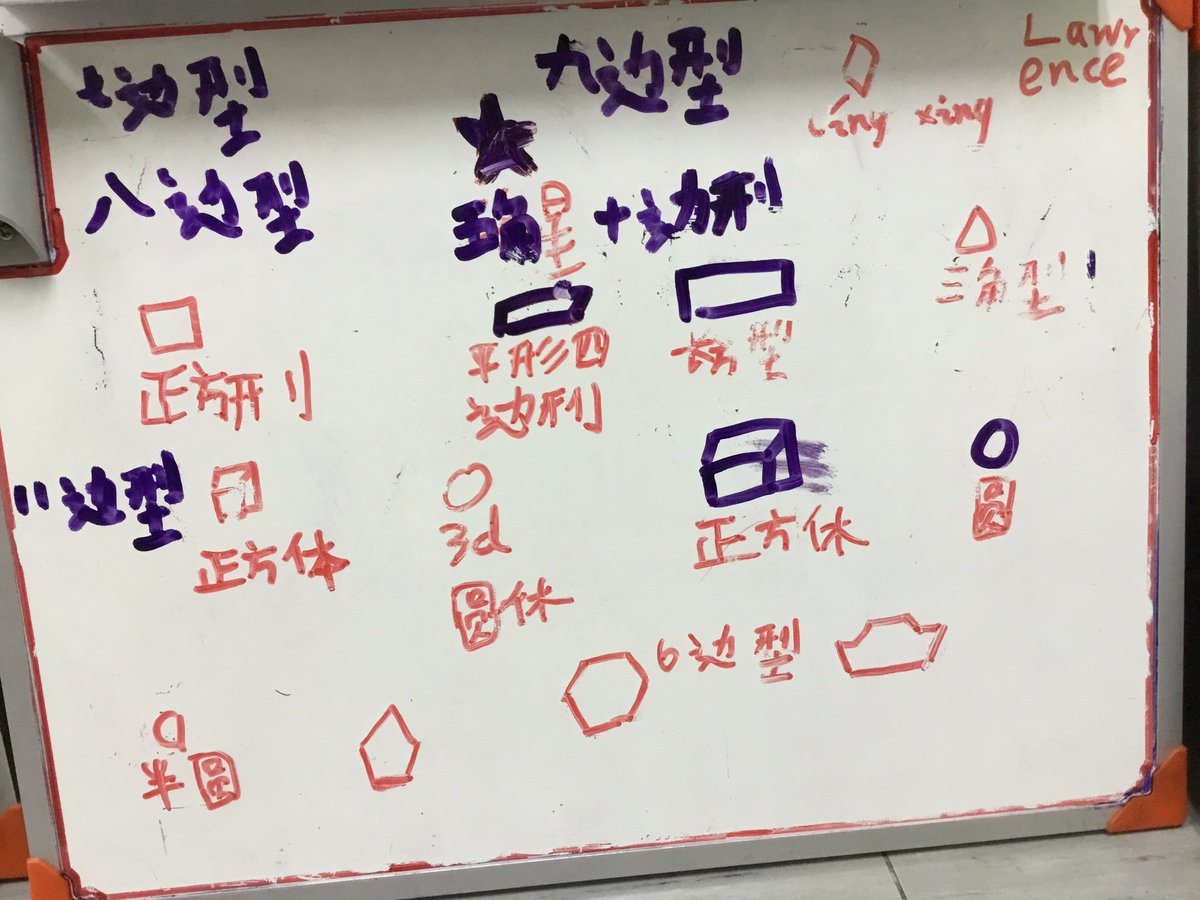 七边型
九边型
Lawr
ence
líng xíng
八边型
五角星
十边形
三角型
正方形
平形四
边形
长方型
11边型
正方体
3d
圆体
正方体
圆
6边型
半圆